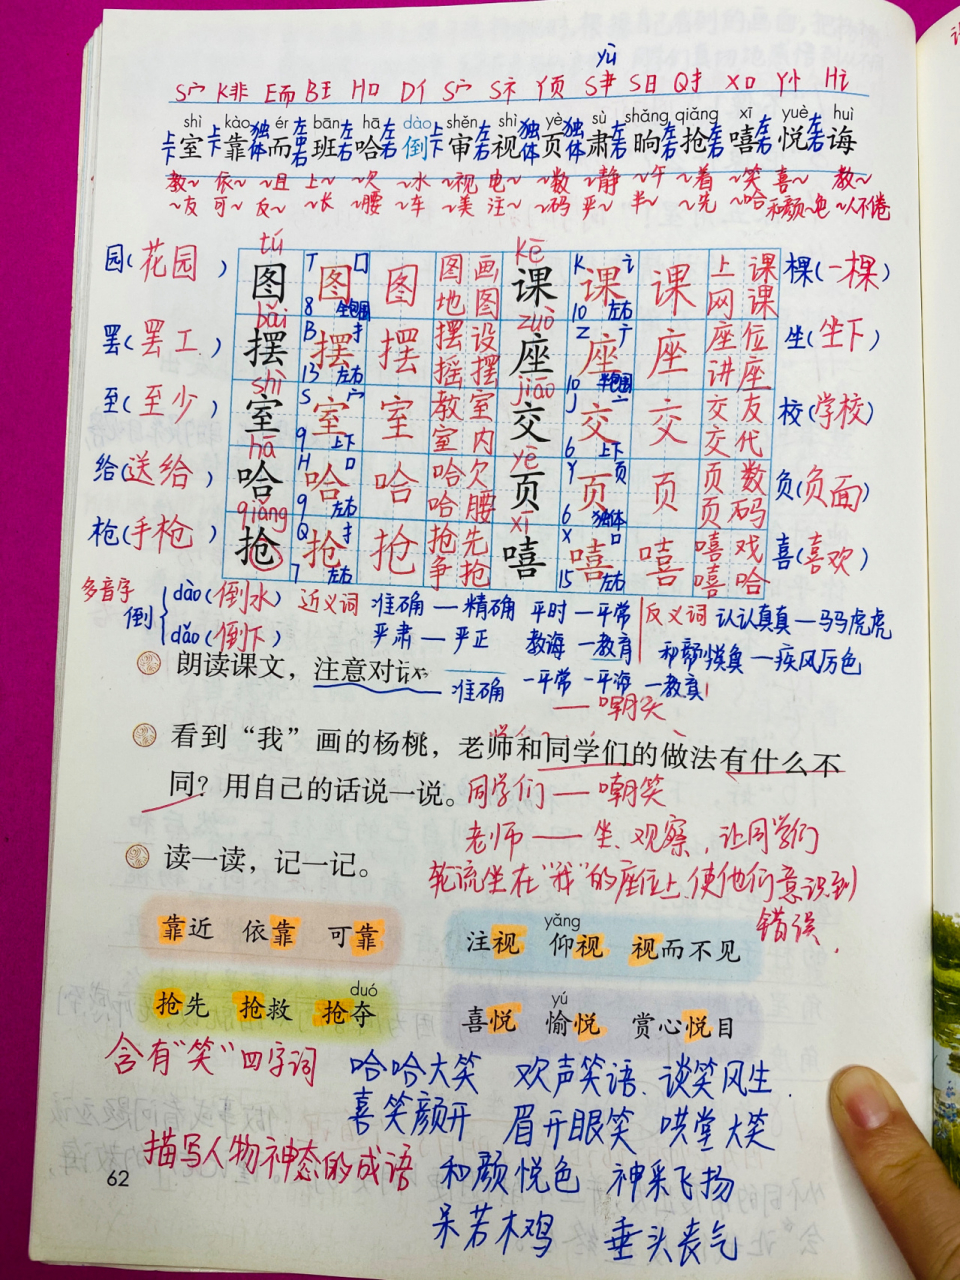 yù
S宀 K非 E而 B王 H口 D亻 S宀 S礻 Y页 S聿 S日 Q扌 X口 Y忄 H讠
shì kào ér bān hā dào shěn shì yè sù shǎng qiǎng xī yuè huì
上下室 上下靠 独体而 左中右班 左右哈 左右倒 上下审 左右视 独体页 独体肃 左右晌 左右抢 左右嘻 左右悦 左右诲
教~ 依~ ~且 上~ ~欠 ~水 ~视 电~ ~数 ~静 ~午 ~着 ~笑 喜~ 教~
~友 可~ 反~ ~长 ~腰 ~车 ~美 注~ ~码 严~ 半~ ~先 ~哈 和颜~色 ~人不倦
tú kē
园(花园) 图 T 囗 8 全包围 图 图 图画 地图 课 K 讠 10 左右 课 课 上课 网课 棵(一棵)
bǎi zuò
罢(罢工) 摆 B 扌 13 左右 摆 摆 摆设 摇摆 座 Z 广 10 半包围 座 座 座位 讲座 坐(坐下)
shì jiāo
至(至少) 室 S 宀 9 上下 室 室 教室 室内 交 J 亠 6 上下 交 交 交友 交代 校(学校)
hā yè
给(送给) 哈 H 口 9 左右 哈 哈 哈欠 哈腰 页 Y 页 6 独体 页 页 页数 页码 负(负面)
qiǎng xī
枪(手枪) 抢 Q 扌 7 左右 抢 抢 抢先 争抢 嘻 X 口 15 左右 嘻 嘻 嘻戏 嘻哈 喜(喜欢)
多音字 倒 dào(倒水) dǎo(倒下)
近义词 准确—精确 平时—平常
严肃—严正 教诲—教育
反义词 认认真真—马马虎虎
和颜悦色—疾风厉色
朗读课文，注意对话 准确 —平常 —平诲 —教育
—嘲笑
看到“我”画的杨桃，老师和同学们的做法有什么不
同？用自己的话说一说。 同学们——嘲笑
老师——坐、观察，让同学们
读一读，记一记。 轮流坐在“我”的座位上,使他们意识到
错误.
靠近 依靠 可靠
yǎng
注视 仰视 视而不见
duó
抢先 抢救 抢夺
yú
喜悦 愉悦 赏心悦目
含有“笑”四字词 哈哈大笑 欢声笑语、谈笑风生.
喜笑颜开 眉开眼笑 哄堂大笑
描写人物神态的成语 和颜悦色 神采飞扬
呆若木鸡 垂头丧气
62